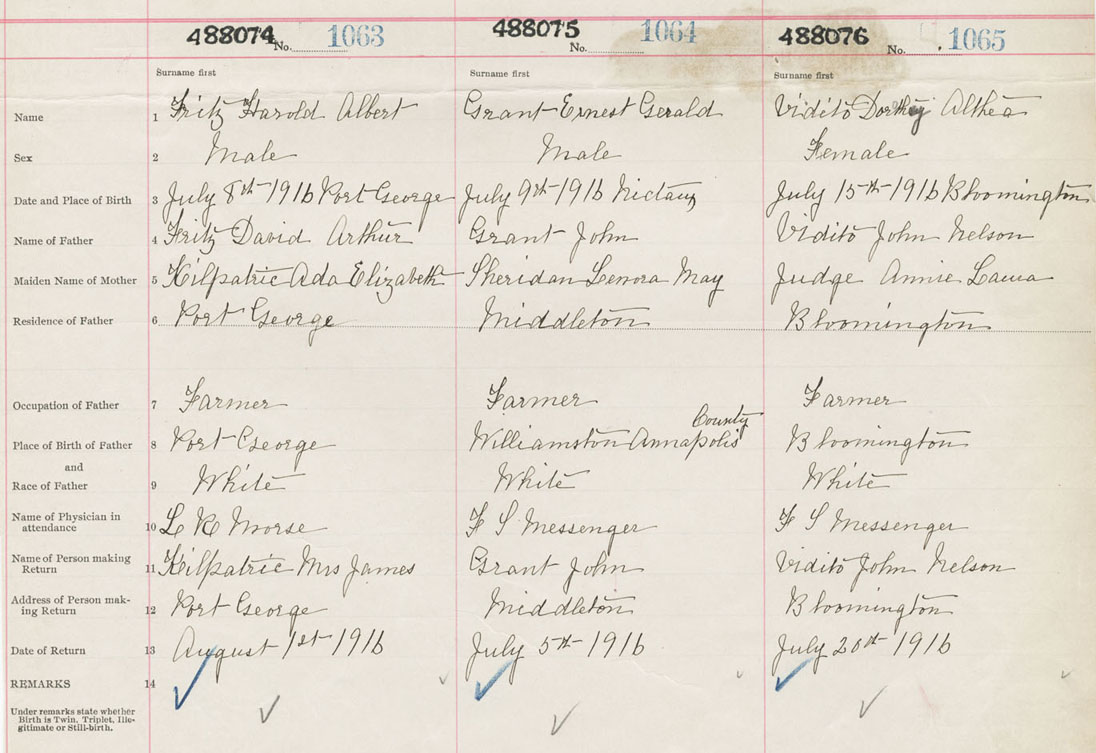 488074 No. 1063 488075 No. 1064 488076 No. 1065
Surname first Surname first Surname first
Name 1 Fritz Harold Albert Grant Ernest Gerald Vidito Dorthy Althea
Sex 2 Male Male Female
Date and Place of Birth 3 July 8th 1916 Port George July 9th 1916 Nictaux July 15th 1916 Bloomington
Name of Father 4 Fritz David Arthur Grant John Vidito John Nelson
Maiden Name of Mother 5 Kilpatric Ada Elizabeth Sheridan Lenora May Judge Annie Laura
Residence of Father 6 Port George Middleton Bloomington
Occupation of Father 7 Farmer Farmer Farmer
County
Place of Birth of Father 8 Port George Williamston Annapolis Bloomington
and
Race of Father 9 White White White
Name of Physician in
attendance 10 L R Morse F S Messenger F S Messenger
Name of Person making
Return 11 Kilpatric Mrs James Grant John Vidito John Nelson
Address of Person mak-
ing Return 12 Port George Middleton Bloomington
Date of Return 13 August 1st 1916 July 5th 1916 July 20th 1916
REMARKS 14
Under remarks state whether
Birth is Twin, Triplet, Ille-
gitimate or Still-birth.